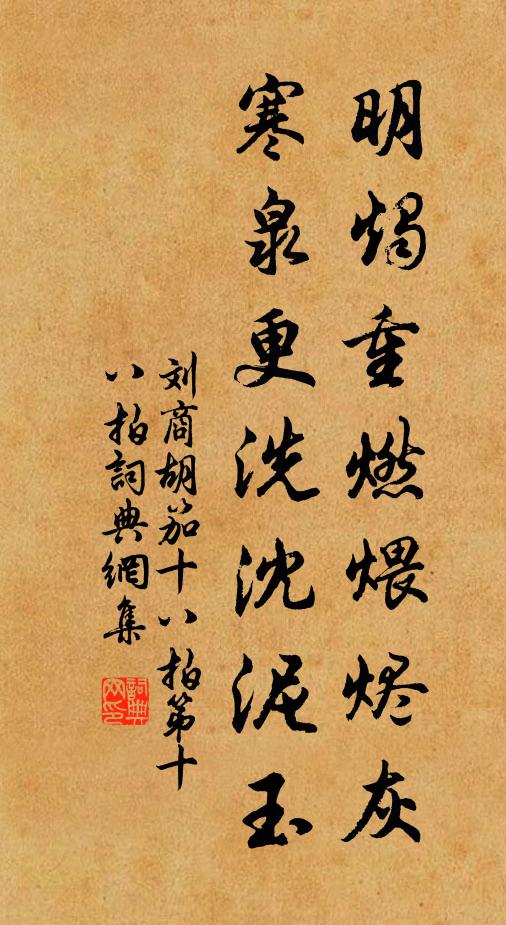 明烛重燃煨烬灰
寒泉更洗沈泥玉
刘商胡笳十八拍第十
八拍詞典網集
詞典网印